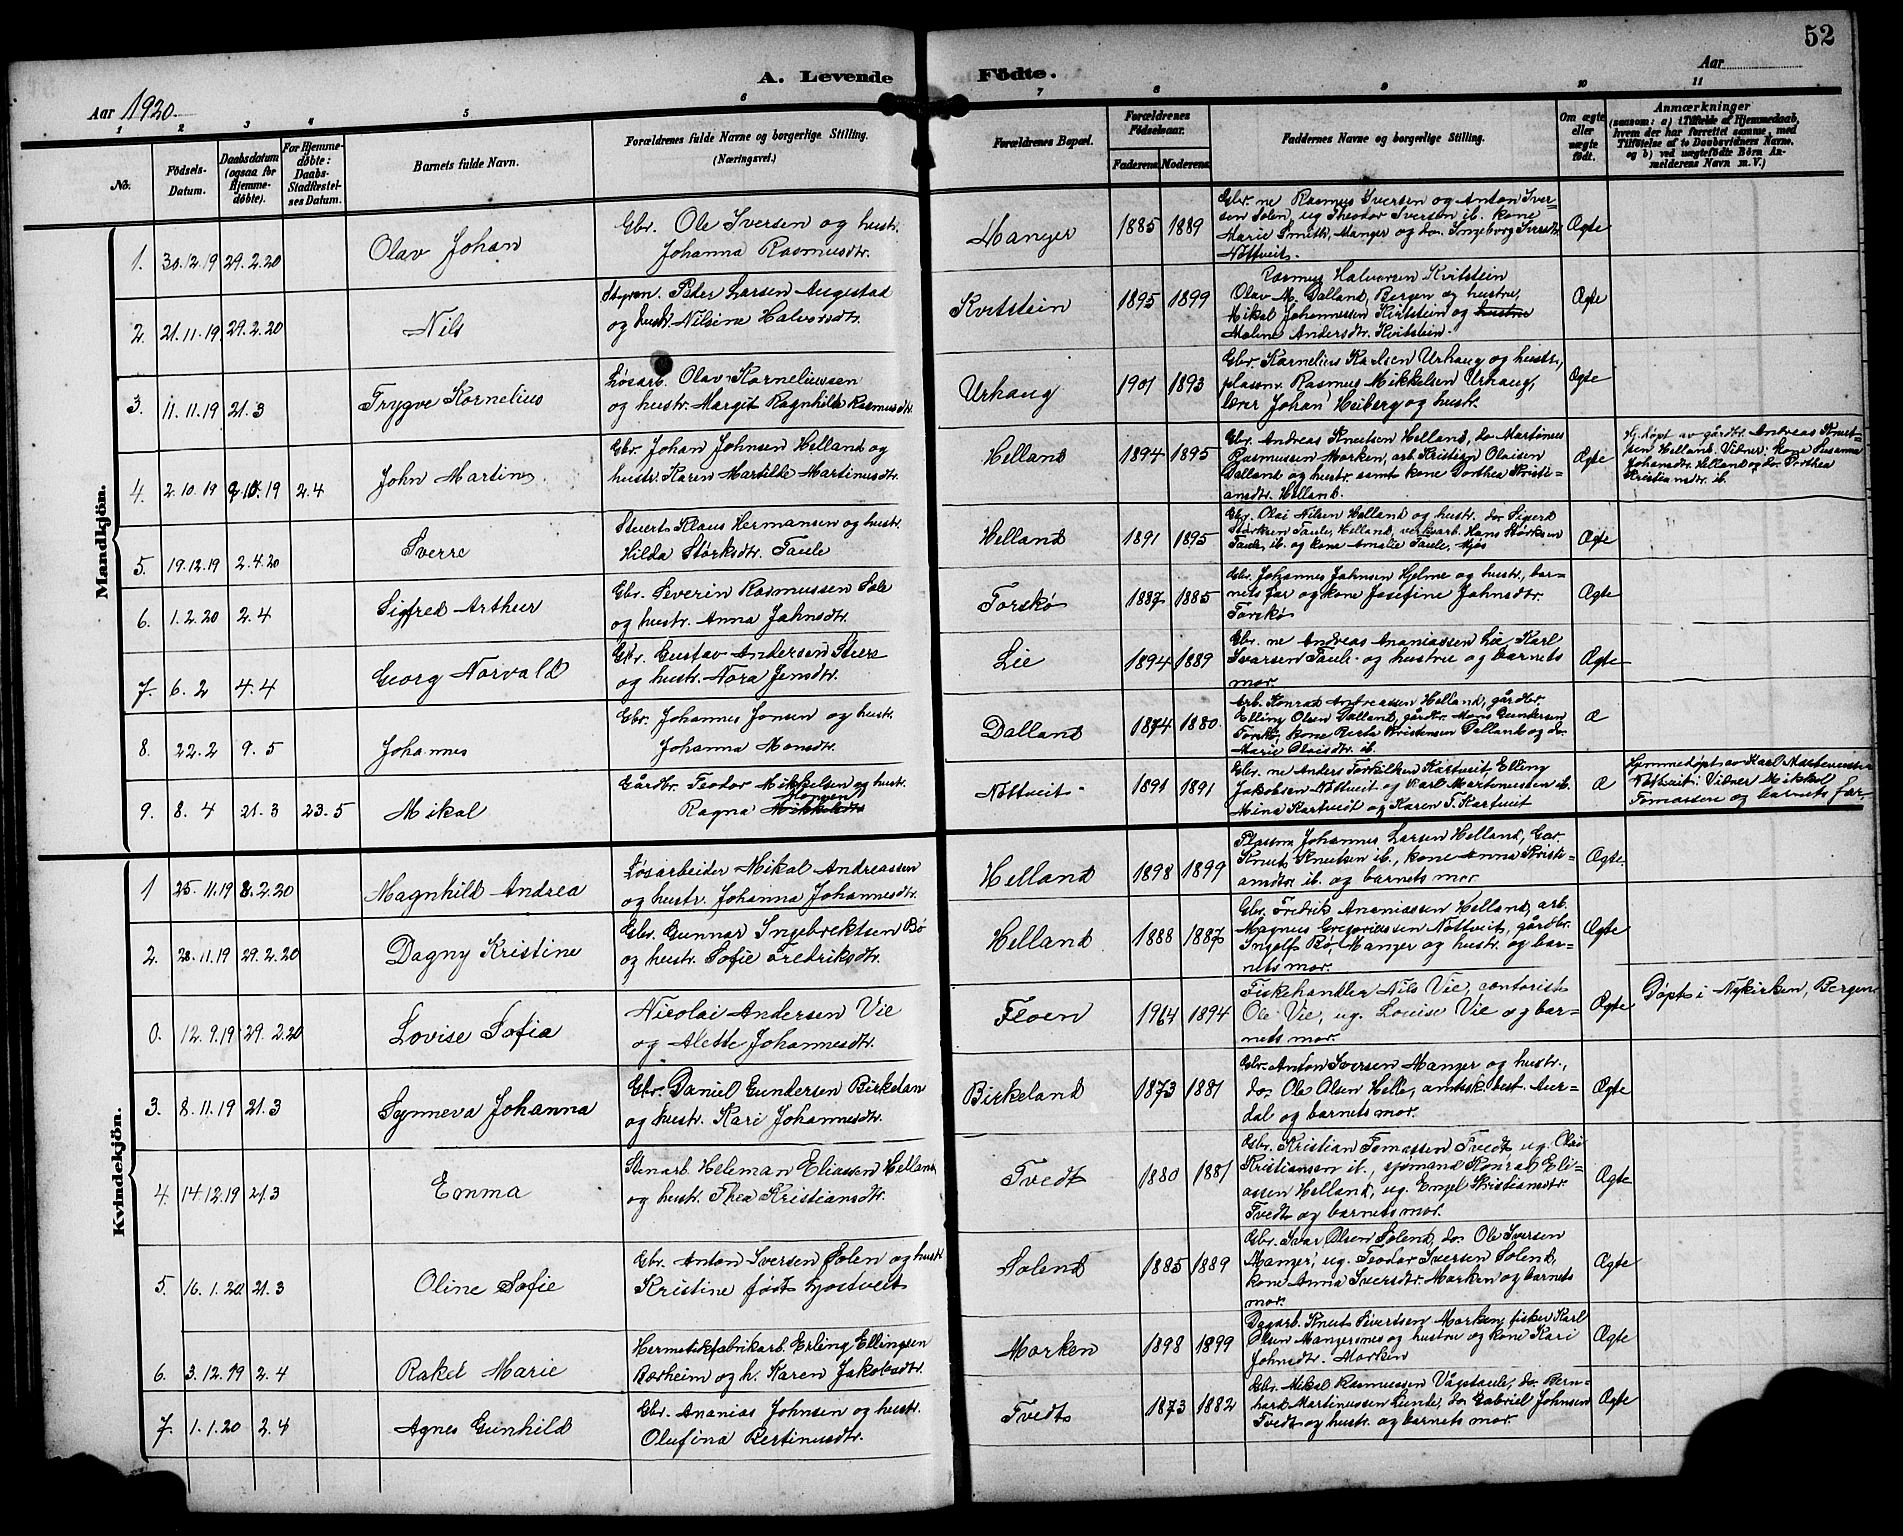 52
A. Levende Födte.
Aar 1920.
Aar
1 2 3 4 5 6 7 8 9 10 11
No.
Födsels-Datum.
Daabsdatum (ogsaa for Hjemmedöbte).
For Hjemmedöbte: Daabs-Stadfæstelses Datum.
Barnets fulde Navn.
Forældrenes fulde Navne og borgerlige Stilling. (Næringsvei.)
Forældrenes Bopæl.
Forældrenes Födselsaar.
Faderens. Moderens.
Faddernes Navne og borgerlige Stilling.
Om ægte eller uægte födt.
Anmærkninger
(saasom: a) i Tilfælde af Hjemmedaab, hvem der har forrettet samme, med Tilföielse af to Daabsvidners Navne, og b) ved uægtefödte Börn Anmelderens Navn m. V.)
Mandkjön.
1. 30.12.19 29.2.20 Olav Johan
Gbr. Ole Iversen og hustr.
Johanna Rasmusdtr.
Manger 1885 1889
Gbr. ne Rasmus Iversen og Anton Iversen Solen, ug Theodor Iversen ib. kone
Marie Smith, Manger og do. Ingeborg Iversdtr
Nøttveit.
Ægte
2. 21.11.19 29.2.20 Nils
Styrm. Peder Larsen Augestad
og hustr. Nilsine Halvorsdtr.
Kvitstein 1895 1899
Rasmus Halvorsen Kvitstein
Olav M. Dalland, Bergen og hustru,
Mikal Johannessen Kvitstein og hustru
Malene Andersdtr. Kvitstein.
Ægte
3. 11.11.19 21.3 Trygve Kornelius
Løsarb. Olav Korneliussen
og hustr. Margit Ragnhild Rasmusdtr
Urhaug 1901 1893
Gbr. Kornelius Karlsen Urhaug og hustr.,
plassm. Rasmus Mikkelsen Urhaug,
lærer Johan Heiberg og hustr.
Ægte
4. 2.10.19 9.10.19 2.4 John Martin
Gbr. Johan Johnsen Helland og
hustr. Karen Martilde Martinusdtr.
Helland 1894 1895
Gbr. Andreas Knutsen Helland, do Martinus
Rasmussen Morken, arb. Kristian Olaisen
Dalland og hustr. samt kone Dorthea Kristiansdtr. Helland.
Ægte
Hj. døpt av gårdbr. Andreas Knutsen Helland. Vidner: kone Susanna
Johansdtr. Helland og do. Dorthea
Kristiansdtr. ib.
5. 19.12.19 2.4.20 Sverre
Stuert Klaus Hermansen og hustr.
Hilda Størksdtr. Taule
Helland 1891 1895
Gbr. Olai Nilsen Helland og hustr. do Sigurd
Størksen Taule, Helland, verksarb. Hans Størksen
Taule, ib. og kone Amalie Taule, Mjøs
Ægte
6. 1.2.20 2.4 Sigfred Arthur
Gbr. Severin Rasmussen Sæle
og hustr. Anna Jahnsdtr.
Torskø 1887 1885
Gbr. Johannes Jahnsen Hjelme og hustr., barnets far og kone Josefine Jahnsdtr.
Torskø
Ægte
7. 6.2 4.4 Georg Norvald
Gbr. Gustav Andersen
og hustr. Nora Jensdtr.
Lie 1894 1889
Gbr. ne Andreas Ananiassen Lie Karl
Ivarsen Taule og hustru og barnets
mor.
Ægte
8. 22.2 9.5 Johannes
Gbr. Johannes Jonsen og hustr.
Johanna Monsdtr.
Dalland 1874 1880
Arb. Konrad Andreassen Helland, gårdbr.
Elling Olsen Dalland, gårdbr. Mons Gundersen
Torskø, kone Berta Kristensen Dalland og do.
Marie Olaisdtr. ib.
Æ
9. 8.4 21.3 23.5 Mikal
Gårdbr. Teodor Mikkelsen og hustr.
Ragna Monsen Mikkelsdtr
Nøttveit 1891 1891
Gbr. ne Anders Torkilsen Kartveit Elling
Jakobsen Nøttveit og Karl Martinussen ib.
Mina Kartveit og Karen T. Kartveit
Æ
Hjemmedøpt av Karl Martinussen
Nøttveit: Vidner Mikkal
Tomassen og barnets far.
Kvindekjön.
1 25.11.19 8.2.20 Magnhild Andrea
Løsarbeider Mikal Andreassen
og hustr. Johanna Johannesdtr.
Helland 1898 1899
Plassm. Johannes Larsen Helland, Gbr
Knut Knutsen ib., kone Anna Kristiansdtr ib. og barnets mor.
Ægte
2. 28.11.19 29.2.20 Dagny Kristine
Gbr. Gunnar Ingebrektsen Bø
og hustr. Sofie Fredriksdtr.
Helland 1888 1887
Gbr. Fredrik Ananiassen Helland, arb.
Magnus Gregoriussen Nøttveit, gårdbr.
Ingolf Bø, Manger og hustr. og barnets mor.
Ægte
0. 12.9.19 29.2.20 Lovise Sofia
Nicolai Andersen Vie
og Alette Johannesdtr.
Floen 1964 1894
Fiskehandler Nils Vie, contorist
Ole Vie, ug. Louise Vie og barnets mor.
Ægte
Døpt i Nykirken, Bergen
3. 8.11.19 21.3 Synneva Johanna
Gbr. Daniel Gundersen Birkeland
og hustr. Kari Johannesdtr.
Birkeland 1873 1881
Gbr. Anton Iversen Manger og hustr.,
do. Ole Olsen Helle, amtsk.best. Aurdal og barnets mor.
Ægte
4. 14.12.19 21.3 Emma
Stenarb. Heleman Eliassen Helland
og hustr. Thea Kristiansdtr.
Tvedt 1880 1881
Gbr. Kristian Tomassen Tvedt, ug. Olai
Kristiansen ib., sjømand Konrad Eliassen Helland, ug. Engel Kristiansdtr.
Tvedt og barnets mor.
Ægte
5. 16.1.20 21.3 Oline Sofie
Gbr. Anton Iversen Solen og hustr
Kristine født
Solend 1885 1889
Gbr. Ivar Olsen Solend, do. Ole Iversen
Manger, ug. Teodor Iversen Solend,
kone Anna Iversdtr. Morken og barnets
mor.
Ægte
6. 3.12.19 2.4 Rakel Marie
Hermetikfabrikarb. Erling Ellingsen
Bærheim og h. Karen Jakobsdtr.
Morken 1898 1899
Dagarb. Knut Sivertsen Morken, fisker Karl
Olsen Mangersnes og hustru og kone Kari
Johnsdtr. Morken
Ægte
7. 1.1.20 2.4 Agnes Gunhild
Gbr. Ananias Johnsen og hustr.
Olufina Bertinusdtr.
Tvedt 1873 1882
Gbr. Mikal Rasmussen Vågstaule, do. Bernhard Martinussen Lunde, do Gabriel Johnsen
Tvedt og hustr. og barnets mor.
Ægte